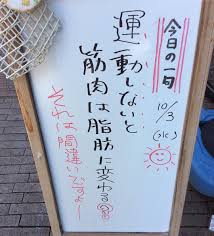 今日の一句
10/3
運動しないと
筋肉は脂肪に変わる
それは間違いですよー